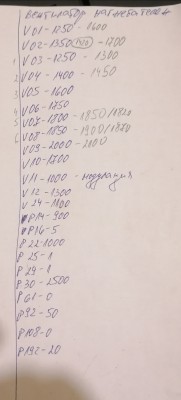 вентилятор нагнетателя
V 01 - 1250 - 1600
V 02 - 1350 (1400) - 1200
V 03 - 1250 - 1300
V 04 - 1400 - 1450
V 05 - 1600
V 06 - 1750
V 07 - 1800 - 1850/1820
V 08 - 1850 - 1900/1870
V 09 - 2000 - 2000
V 10 - 1700
V 11 - 1000 - модуляция
V 12 - 1300
V 24 - 1100
P 14 - 900
P 16 - 5
P 22 - 1000
P 25 - 1
P 29 - 1
P 30 - 2500
P 61 - 0
P 92 - 50
P 108 - 0
P 192 - 20